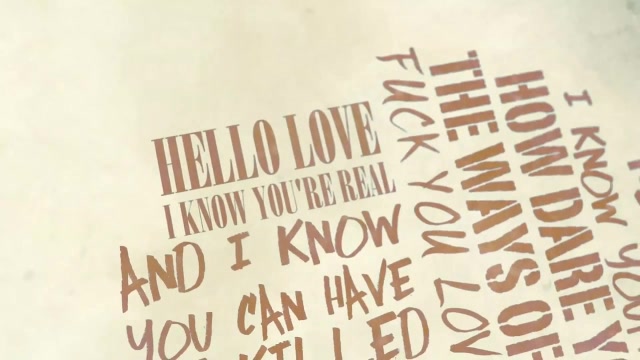 HELLO LOVE
I KNOW YOU'RE REAL
AND I KNOW
YOU CAN HAVE
KILLED
FUCK YOU LOV
THE WAYS OF
HOW DARE Y
I KNOW YOU